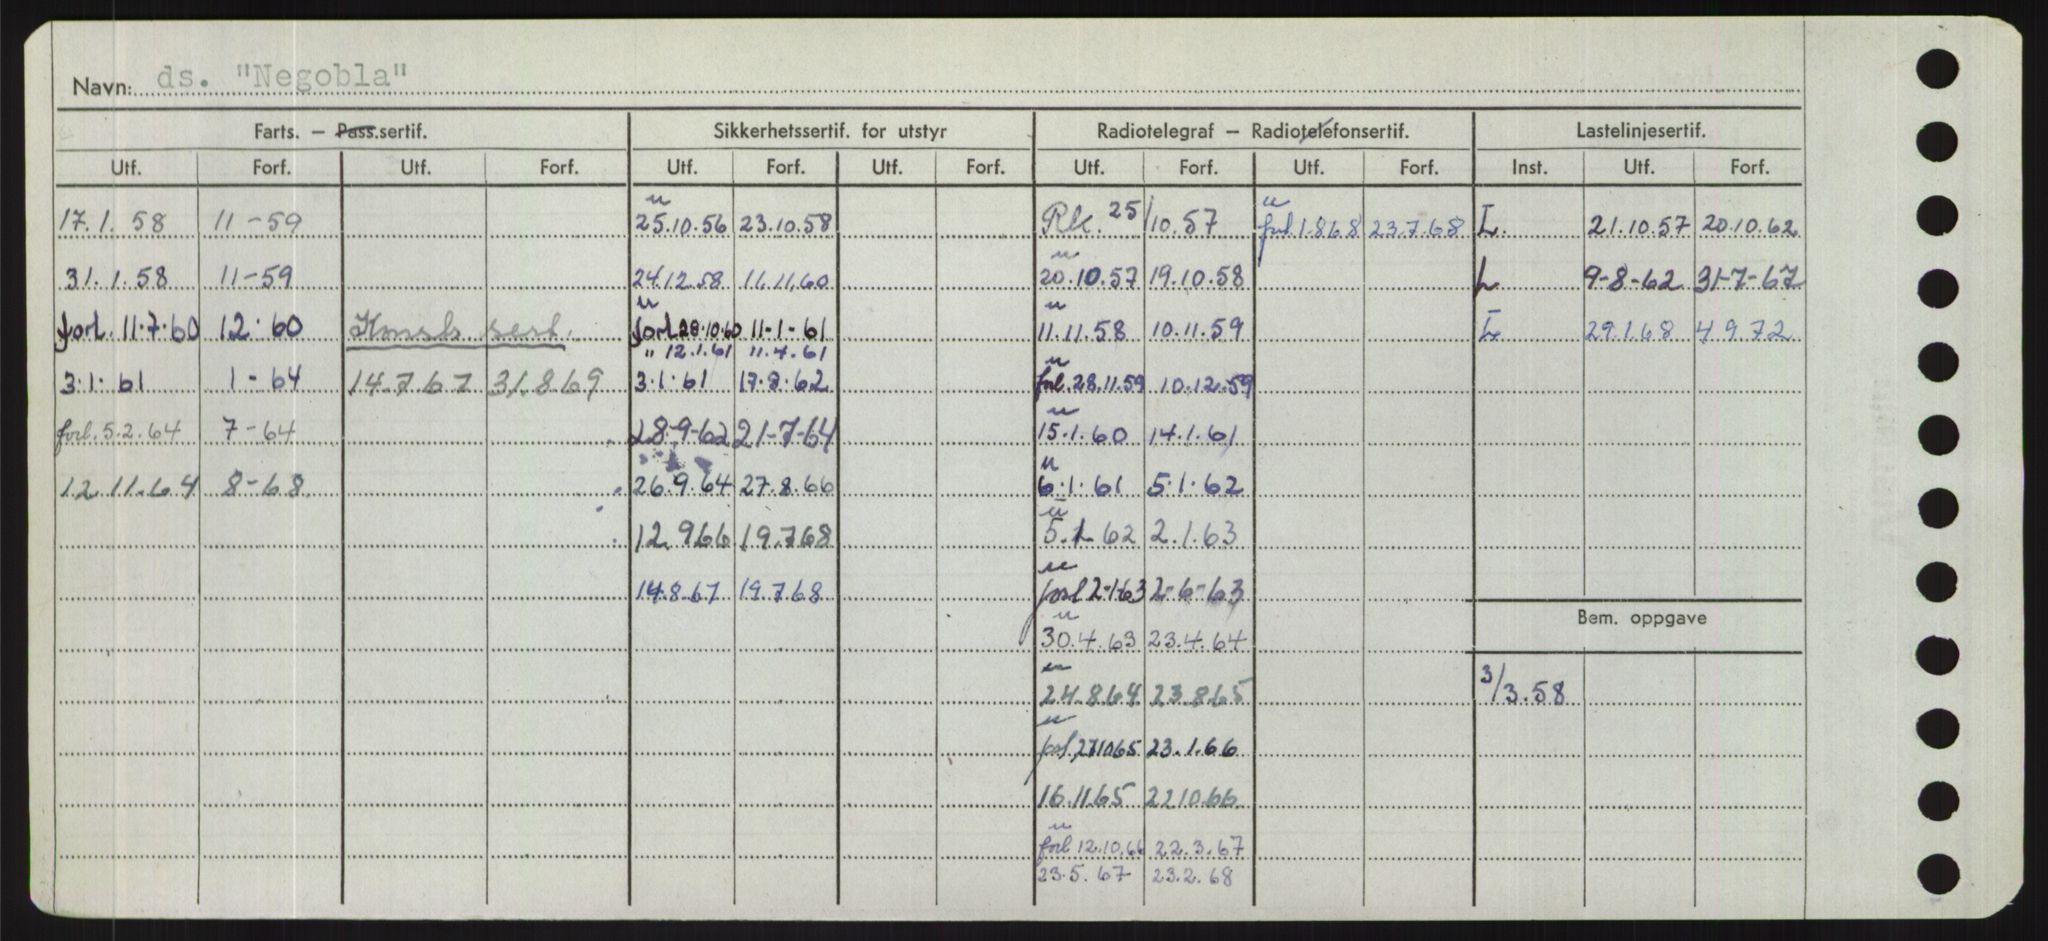 Navn: ds. "Negobla"
Farts. — Pass.sertif. Sikkerhetssertif. for utstyr Radiotelegraf — Radiotelefonsertif. Lastelinjesertif.
Utf. Forf. Utf. Forf. Utf. Forf. Utf. Forf. Utf. Forf. Utf. Forf. Inst. Utf. Forf.
u u
17.1.58 11-59 25.10.56 23.10.58 Rk. 25/10.57 forl.1.8.68 23.7.68 L. 21.10.57 20.10.62
u
31.1.58 11-59 24.12.58 11.11.60 20.10.57 19.10.58 L 9-8-62 31-7-67
u u
forl. 11.7.60 12.60 Konstr. sert. forl 28.10.60 11-1-61 11.11.58 10.11.59 L 29.1.68 4.9.72
" 12.1.61 11.4.61
u
3.1.61 1-64 14.7.67 31.8.69 3.1.61 17.8.62 forl.28.11.59 10.12.59
u
forl.5.2.64 7-64 28-9-62 21-7-64 15.1.60 14.1.61
u
12.11.64 8-68 26.9.64 27.8.66 6.1.61 5.1.62
u
12.9.66 19.7.68 5.1.62 2.1.63
u
14.8.67 19.7.68 forl 2-1-63 2-6-63
Bem. oppgave
u
30.4.63 23.4.64
u
24.8.64 23.8.65 3/3.58
u
forl.27.10.65 23.1.66
16.11.65 22.10.66
u
forl 12.10.66 22.3.67
23.5.67 23.2.68